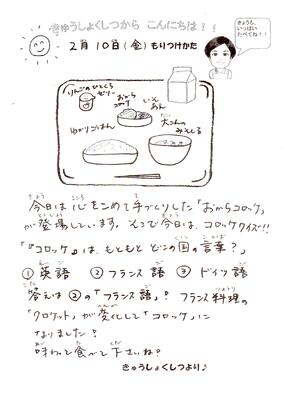 きゅうしょくしつから こんにちは!!
きょうも、
いっぱい
たべてね!!
2月10日(金)もりつけかた
りんごのひとくち
ゼリー
おから
コロッケ
ゆかりごはん
大こんの
みそしる
今日は心をこめて手づくりした「おからコロッケ」
が登場しています。そこで今日は、コロッケクイズ!!
「『コロッケ』は、もともとどこの国の言葉?」
①英語 ②フランス語 ③ドイツ語
答えは②の「フランス語」! フランス料理の
「クロケット」が変化して「コロッケ」に
なりました!
味わって食べて下さいね?
きゅうしょくしつより♪